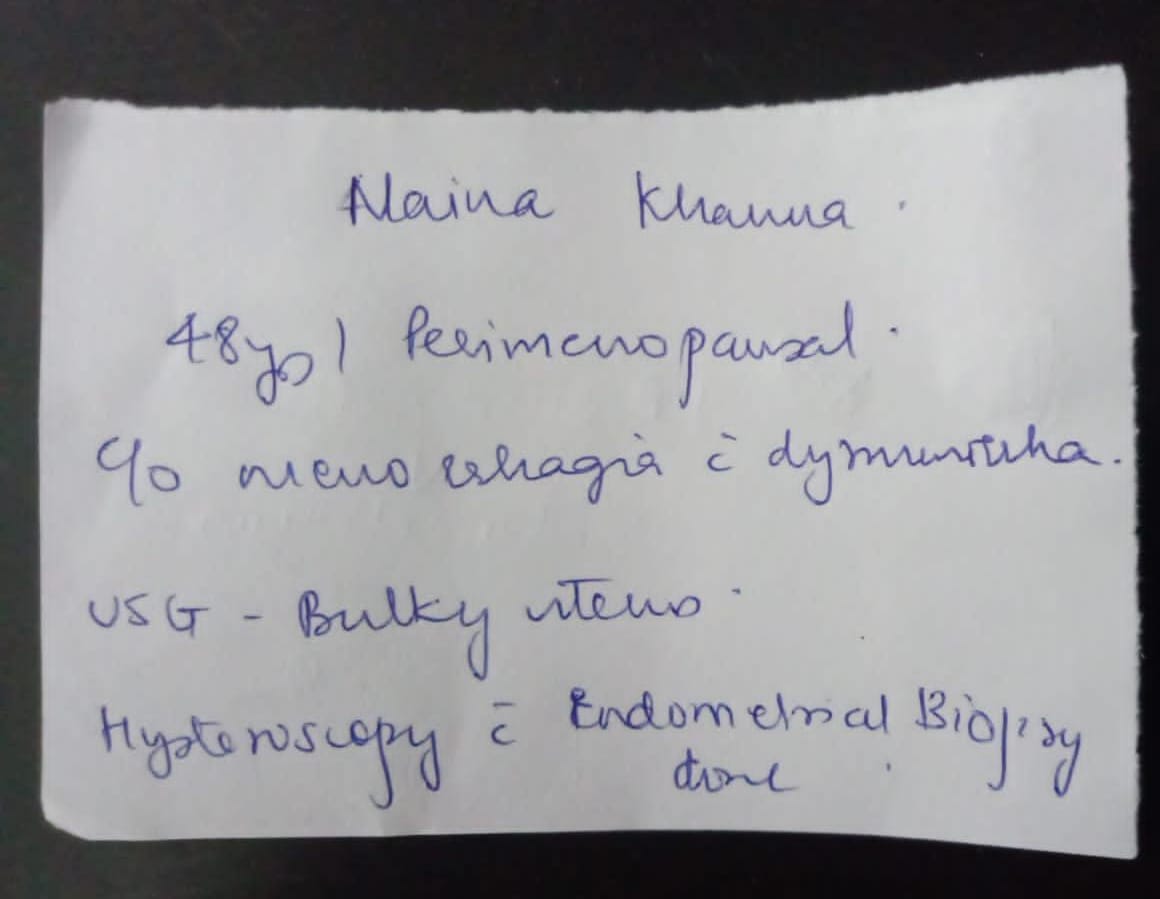 Naina Khanna.
48yo / Perimenopausal.
C/o menorrhagia c̄ dymenorrhea.
USG - Bulky uterus.
Hysteroscopy c̄ Endometrial Biopsy
done.